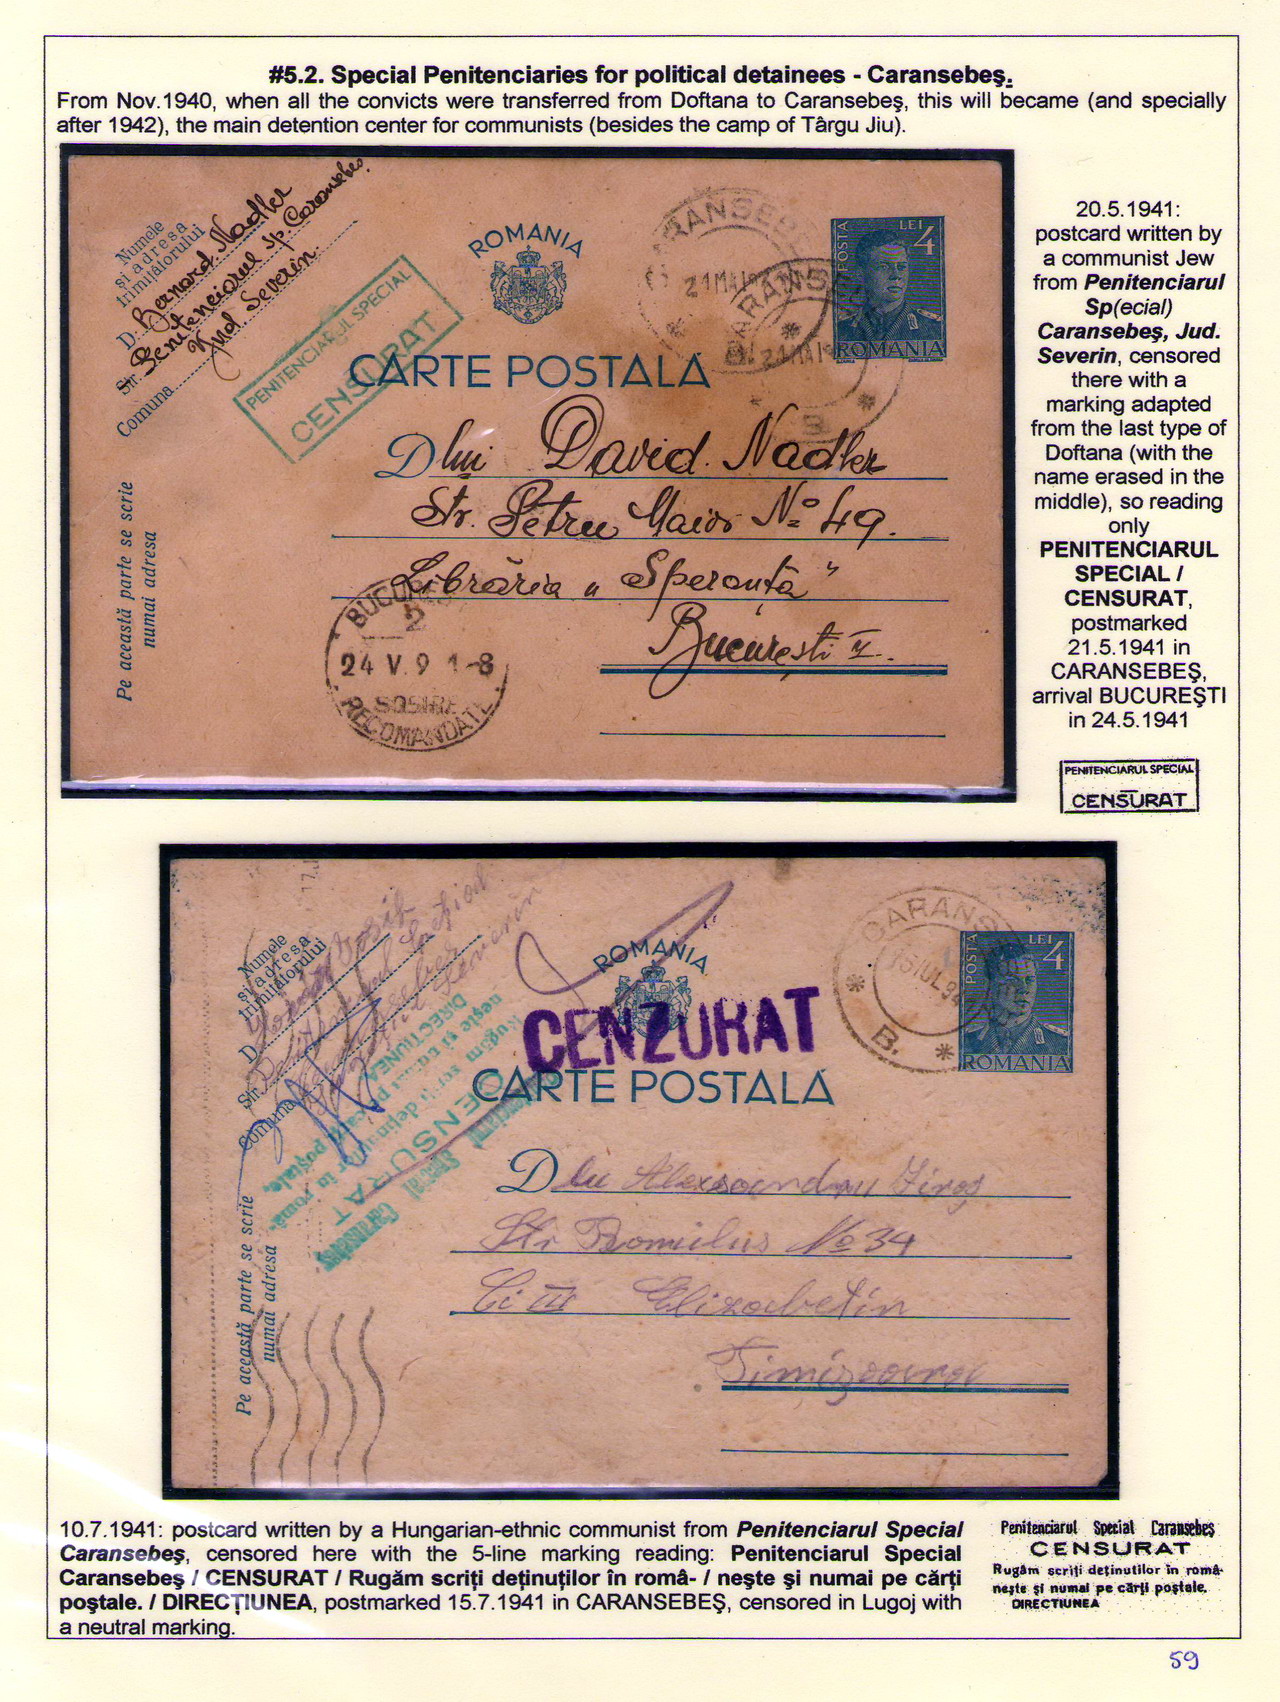 #5.2. Special Penitenciaries for political detainees - Caransebeş.
From Nov.1940, when all the convicts were transferred from Doftana to Caransebeş, this will became (and specially
after 1942), the main detention center for communists (besides the camp of Târgu Jiu).
Numele
şi adresa
trimiţătorului
D. Bernard Nadler
Str. Penitenciarul Sp. Caransebeş
Comuna Jud. Severin
PENITENCIARUL SPECIAL
CENSURAT
ROMANIA
CARANSEBEŞ
21 MAI 9
B.
CARANSEBEŞ
21 MAI 9
B.
POSTA LEI 4
ROMANIA
CARTE POSTALA
Dlui David Nadler
Str. Petru Maior No 49.
Librăria „Speranţa"
Bucureşti
Pe această parte se scrie
numai adresa
BUCUREŞTI
2
24 V. 9 1-8
SOSIRE
RECOMANDATE
20.5.1941:
postcard written by
a communist Jew
from Penitenciarul
Sp(ecial)
Caransebeş, Jud.
Severin, censored
there with a
marking adapted
from the last type of
Doftana (with the
name erased in the
middle), so reading
only
PENITENCIARUL
SPECIAL /
CENSURAT,
postmarked
21.5.1941 in
CARANSEBEŞ,
arrival BUCUREŞTI
in 24.5.1941
PENITENCIARUL SPECIAL
CENSURAT
Numele
şi adresa
trimiţătorului
D.
Str.
Comuna
ROMANIA
CENZURAT
CARTE POSTALA
Penitenciarul Special Caransebeş
CENSURAT
Rugăm scriţi deţinuţilor în româ-
neşte şi numai pe cărţi poştale.
DIRECŢIUNEA
CARANS
15 IUL 94
B.
POSTA LEI 4
ROMANIA
Dlu Alexsandru
Str Romulus No 34
Ci III Elizabetin
Timizoara
Pe această parte se scrie
numai adresa
10.7.1941: postcard written by a Hungarian-ethnic communist from Penitenciarul Special
Caransebeş, censored here with the 5-line marking reading: Penitenciarul Special
Caransebeş / CENSURAT / Rugăm scriţi deţinuţilor în româ- / neşte şi numai pe cărţi
poştale. / DIRECŢIUNEA, postmarked 15.7.1941 in CARANSEBEŞ, censored in Lugoj with
a neutral marking.
Penitenciarul Special Caransebeş
CENSURAT
Rugăm scriţi deţinuţilor în româ-
neşte şi numai pe cărţi poştale.
DIRECTIUNEA
59